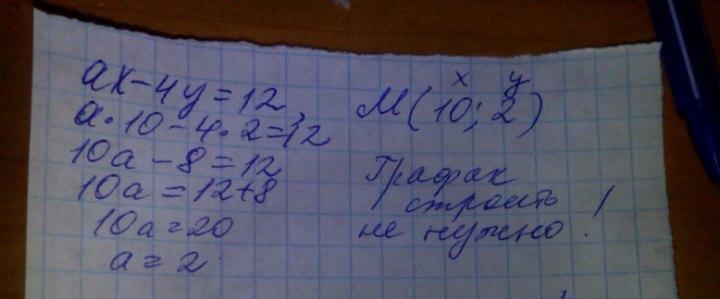 ax - 4y = 12,
a · 10 - 4 · 2 = 12
10a - 8 = 12
10a = 12 + 8
10a = 20
a = 2
x y
М (10; 2)
График
строить
не нужно!